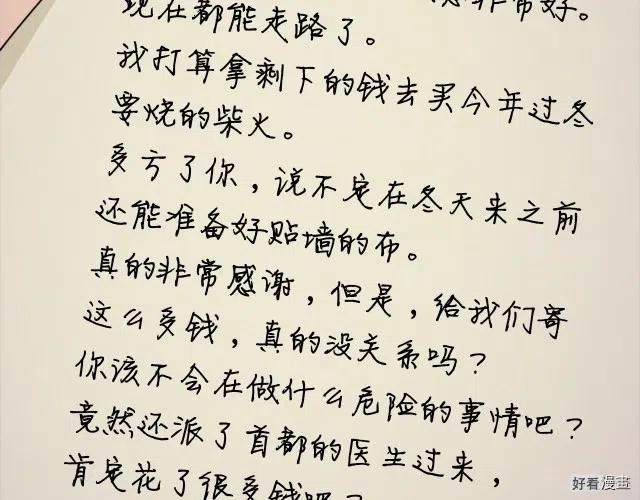 非常好。
现在都能走路了。
我打算拿剩下的钱去买今年过冬
要烧的柴火。
多亏了你，说不定在冬天来之前
还能准备好贴墙的布。
真的非常感谢，但是，给我们寄
这么多钱，真的没关系吗？
你该不会在做什么危险的事情吧？
竟然还派了首都的医生过来，
肯定花了很多钱吧？
好看漫畫